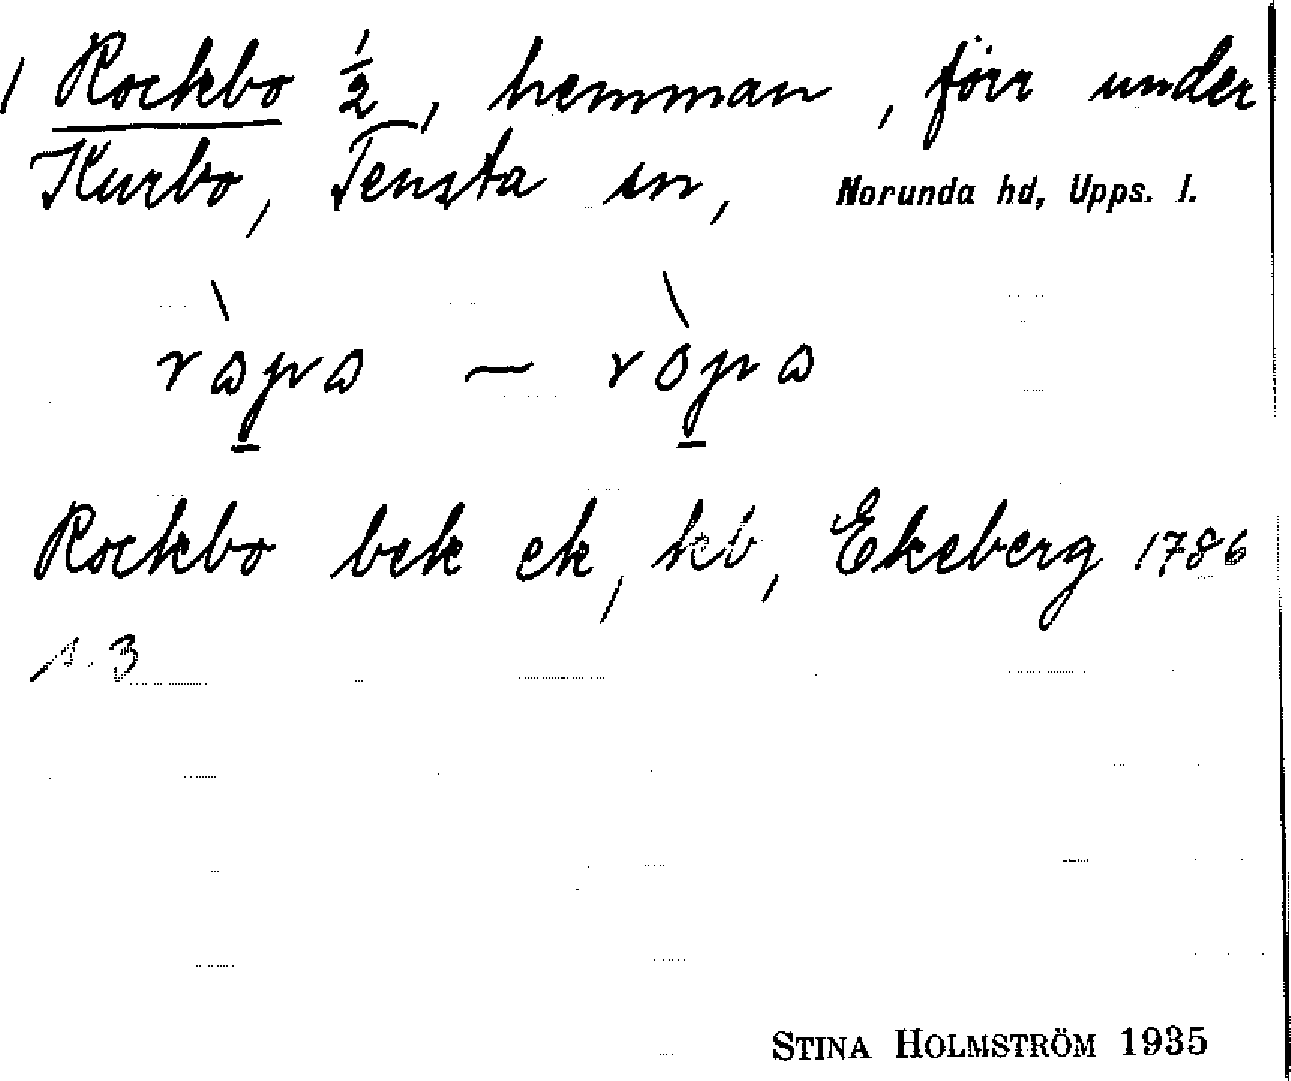 1 Rockbo 1/2, hemman, förr under
Kurbo, Tensta sn, Norunda hd, Upps. l.
Rockbo bek ek, kb, Ekeberg 1786
s. 3
STINA HOLMSTRÖM 1935